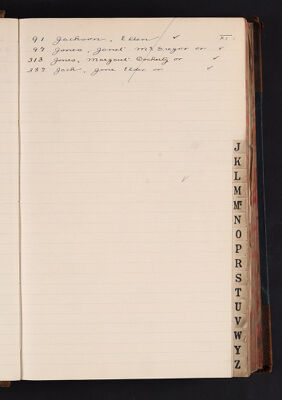 91 Jackson, Ellen ✓
97 Jones, Janet McGregor or ✓
313 Jones, Margaret Docherty or ✓
387 Jack, Jane Elder or ✓
J
K
L
M
Mc
N
O
P
R
S
T
U
V
W
Y
Z